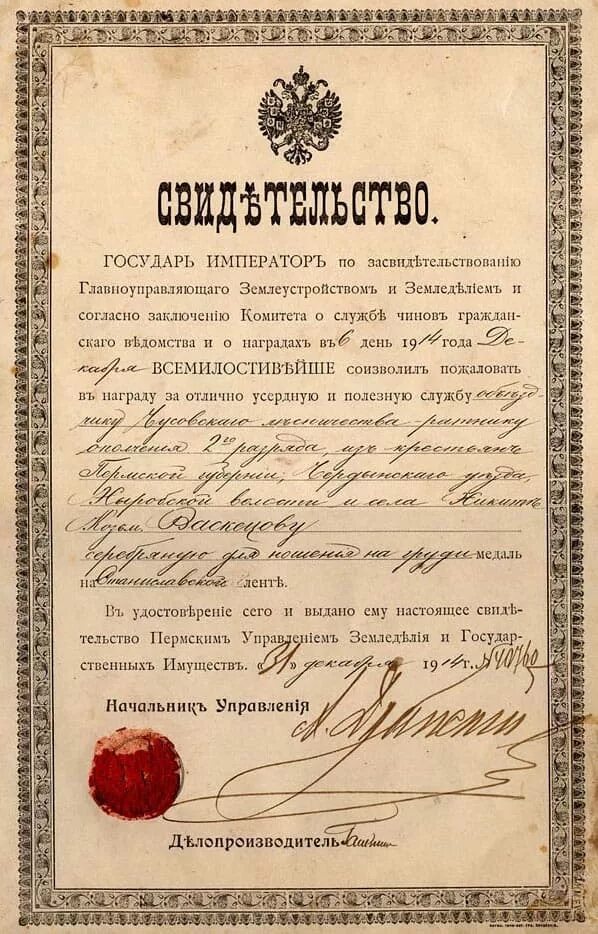 СВИДѢТЕЛЬСТВО.
ГОСУДАРЬ ИМПЕРАТОРЪ по засвидѣтельствованію
Главноуправляющаго Землеустройствомъ и Земледѣліемъ и
согласно заключенію Комитета о службѣ чиновъ граждан-
скаго вѣдомства и о наградахъ въ 6 день 1914 года Де-
кабря ВСЕМИЛОСТИВѢЙШЕ соизволилъ пожаловать
въ награду за отлично усердную и полезную службу объѣзд-
чику Чусовскаго лѣсничества - ратнику
ополченія 2го разряда, изъ крестьянъ
Пермской губерніи, Чердынскаго уѣзда,
Ныробской волости и села Никитѣ
Козьм. Васкецову
серебряную для ношенія на груди медаль
на Станиславской лентѣ.
Въ удостовѣреніе сего и выдано ему настоящее свидѣ-
тельство Пермскимъ Управленіемъ Земледѣлія и Государ-
ственныхъ Имуществъ. «31» декабря 1914 г. № 40760
Начальникъ Управленія
Дѣлопроизводитель